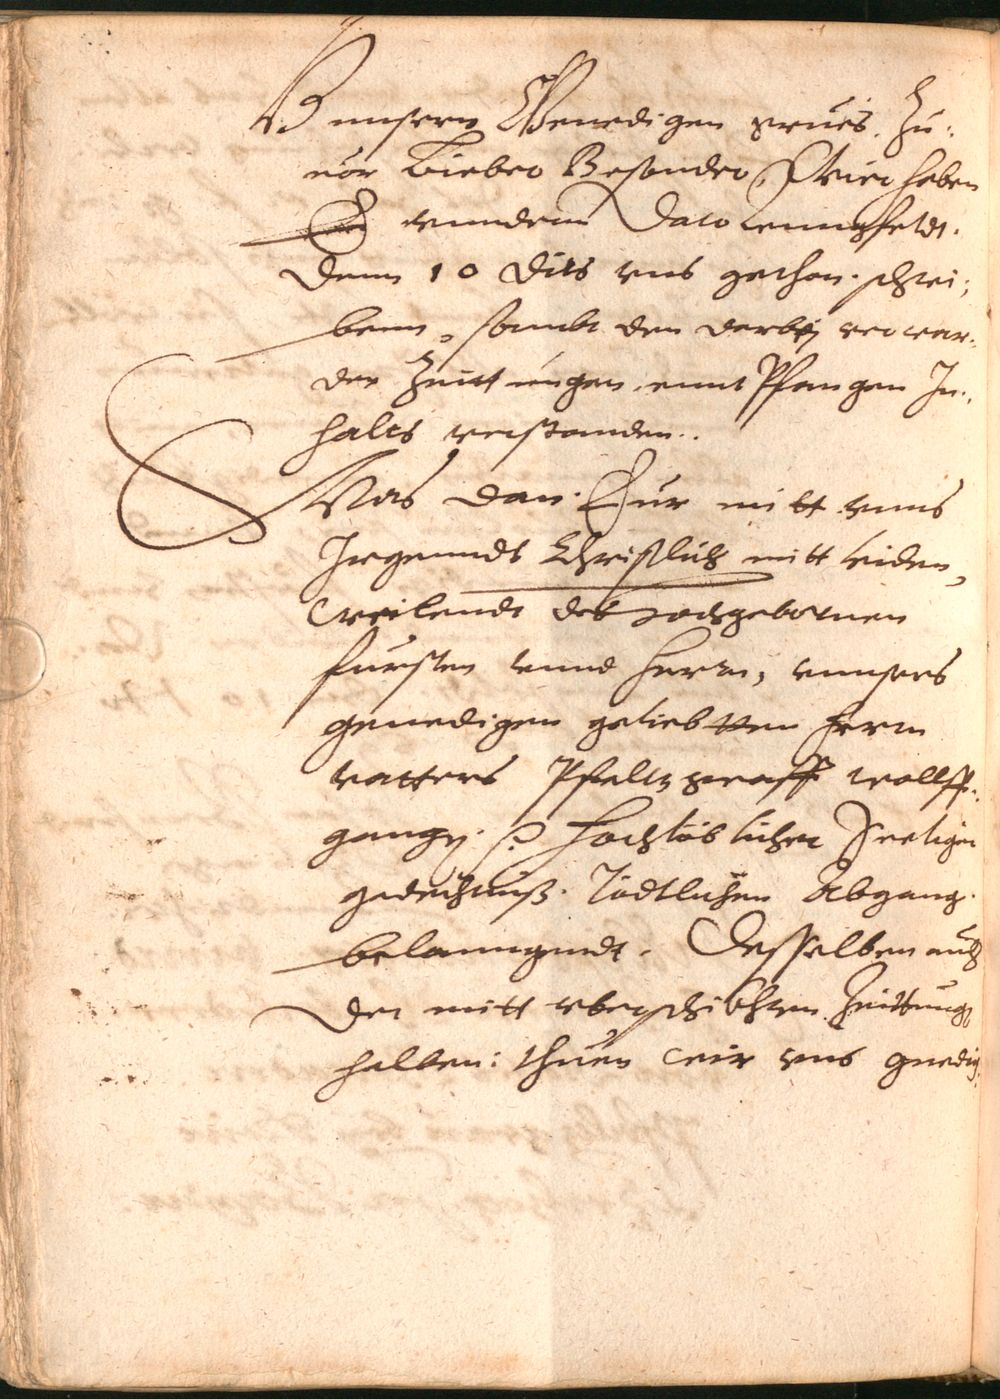 unsern Genedigen grues. Zu-
uor Lieber Besonder, Wier haben
vnnderm Dato
Denn 10 dits vns gethon schrei-
benn, sambt den darbej verwar-
den Zeittungen, empfangen In-
halts verstanden..
Was dan Eur mitt vnns
Iregenndt Christlich mitt leiden,
Weilendt des Hochgebornen
fursten vnnd herrn, vnnsers
genedigen geliebtten herrn
vatters Pfaltzgraff Wolff-
gangs. Hochloblicher Seeligen
gedechtnuß. Todtlichen Abgang
belanngendt. Desselben auch
Der mitt vberschikhten Zeittung
halben: thuen wir vns gnedig-